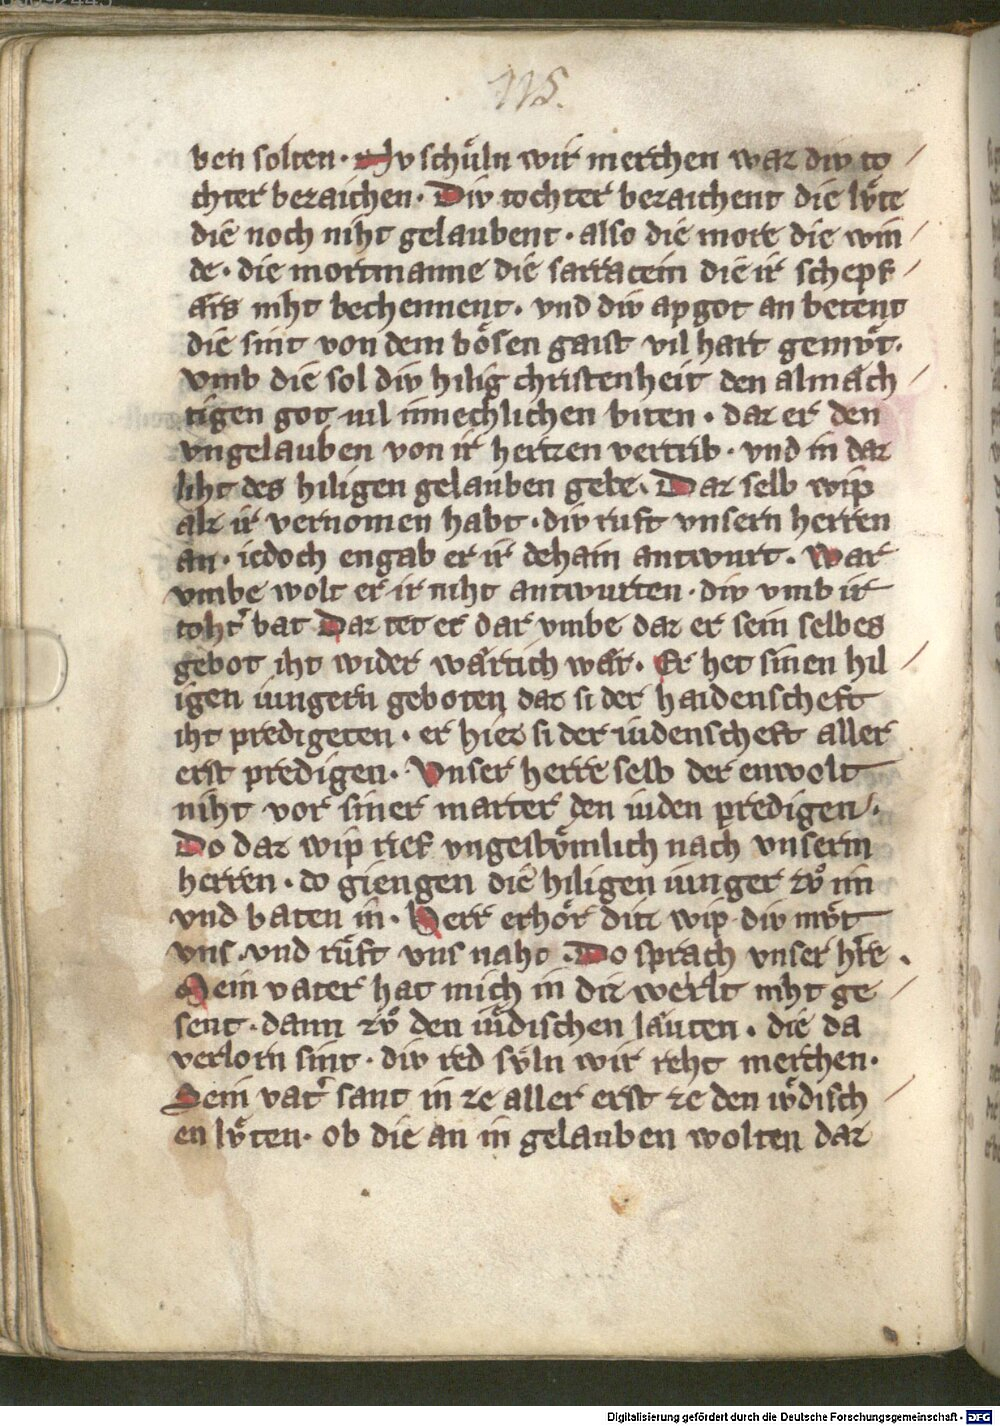 115.
ben solten · Nv schůln wir merchen waz div to /
chter bezaichen · Div tochter bezaichent die lv̊te
die noch niht gelaubent · also die more die win /
de · die mortmanne die sarracein die ir schepf /
ærs niht bechennent · vnd div apgot an betent
die sint von dem bösen gaist vil hart gemv̊t ·
vmb die sol div hilig christenheit den almäch /
tigen got vil innechlichen biten · daz er den
vngelauben von ir hertzen vertrib · vnd in daz
liht des hiligen gelauben gebe · Daz selb wip
alz ir vernomen habt · div ruft vnsern herren
an · iedoch engab er ir dehain antwurt · War
vmbe wolt er ir niht antwurten · div vmb ir
tohtˀ bat Daz tet er dar vmbe daz er sein selbes
gebot iht wider wärtich wär · Er het sinen hil /
igen iungern geboten daz si der haidenscheft
iht predigeten · er hiez si der iudenscheft aller
erst predigen · Vnser herre selb der enwolt
niht vor siner marter den iuden predigen / ·
Do daz wip rief vngestv̊mlich nach vnserm
herren · do giengen die hiligen iunger zv̊ im
vnd baten in · Herr erhör ditz wip div mv̊t
vns · vnd růft vns naht · Do sprach vnser hr̄e ·
Mein vater hat mich in ditz werlt niht ge /
sent · dann zv̊ den iůdischen läuten · die da
verlorn sint · div red sv̊ln wir reht merchen ·
Sein vatˀ sant in ze aller erst ze den iv̊disch /
en lv̊ten · ob die an in gelauben wolten daz
Digitalisierung gefördert durch die Deutsche Forschungsgemeinschaft - DFG